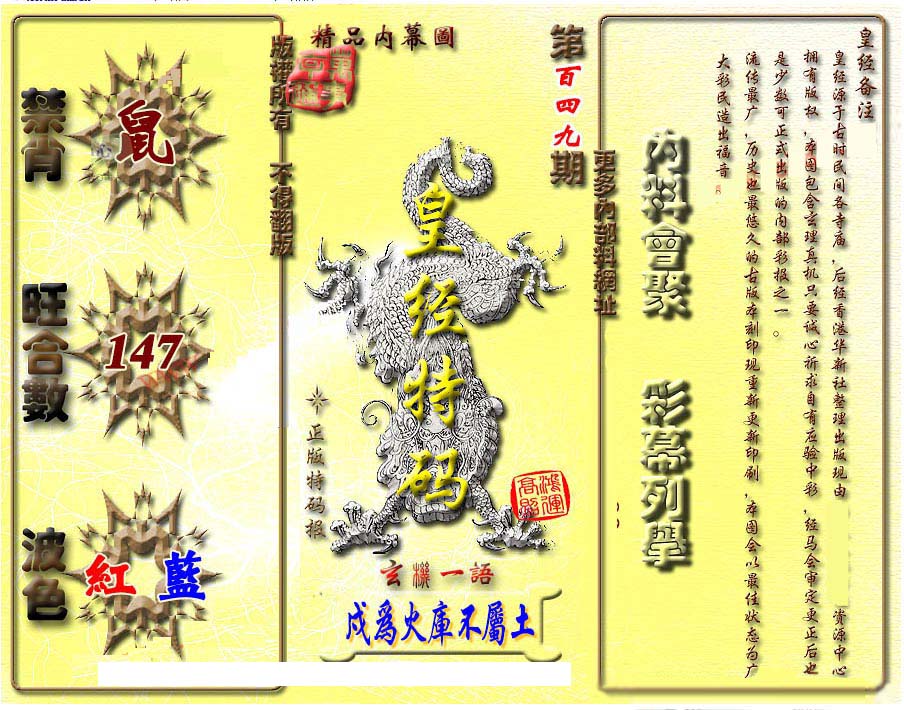 精品內幕圖
第百四九期
版權所有 不得翻版
禁肖
鼠
旺合數
147
波色
紅 藍
皇经特码
正版特码报
鴻運高照
玄機一語
戍爲火庫不屬土
更多內部料網址
內料會聚 彩幕列舉
皇经备注
皇经源于古时民间各寺庙，后经香港华新社整理出版现由 资源中心
拥有版权，本图包含玄理真机只要诚心祈求自有应验中彩，经马会审定更正后也
是少数可正式出版的内部彩报之一。
流传最广，历史也最悠久的古版本刻印现重新更新印刷，本图会以最佳状态为广
大彩民造出福音